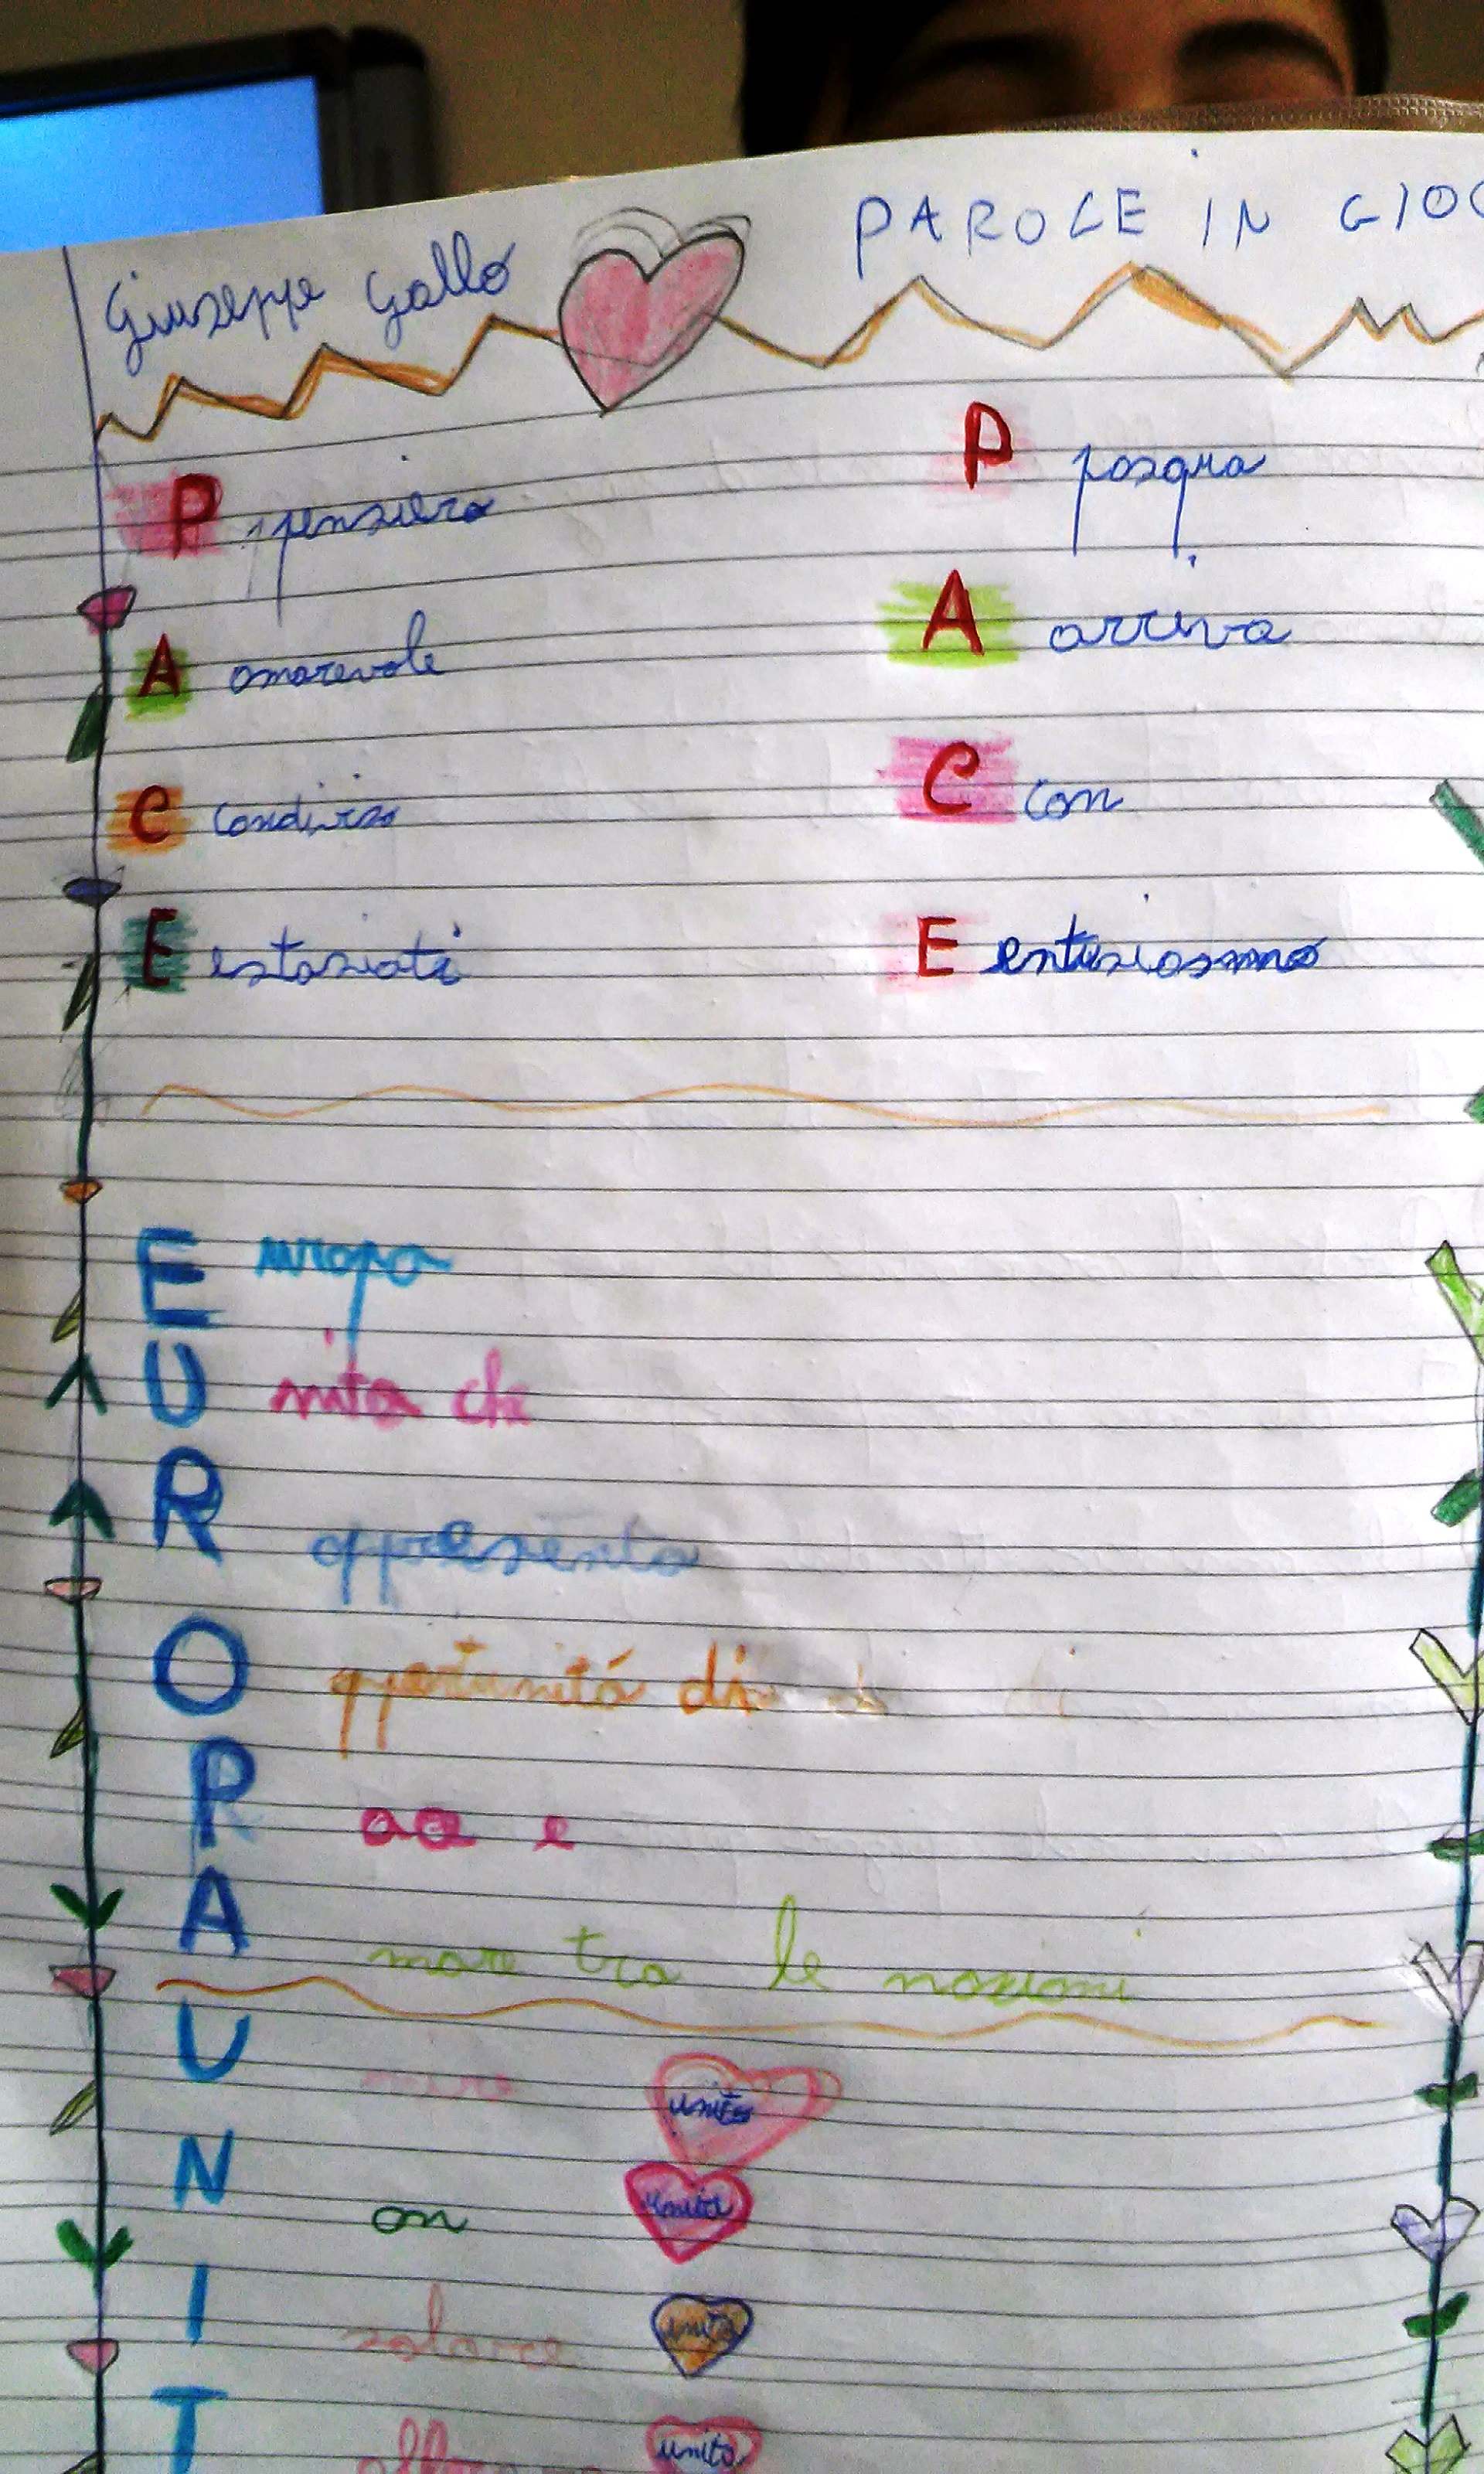 Giuseppe Gallo PAROLE IN GIOC
P pensiero
A amorevole
C condiviso
E estasiati
P pasqua
A arriva
C con
E entusiasmo
E uropa
U nita che
R appresenta
O pportunità di
P ace e
A more tra le nazioni
U nire unita
N on unita
I solare unita
T unita